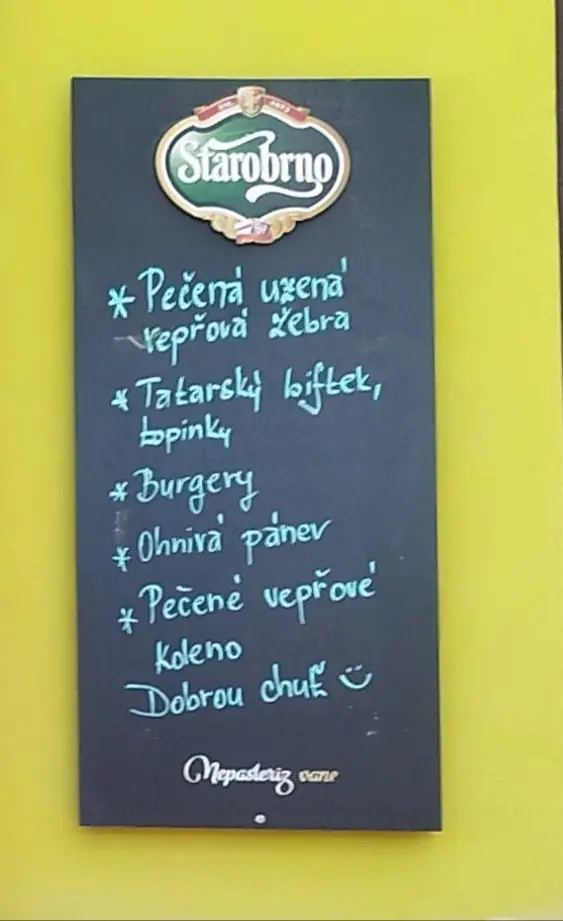 Starobrno
* Pečená uzená
vepřová žebra
* Tatarský biftek,
topinky
* Burgery
* Ohnivá pánev
* Pečené vepřové
koleno
Dobrou chuť
Nepasteriz vane